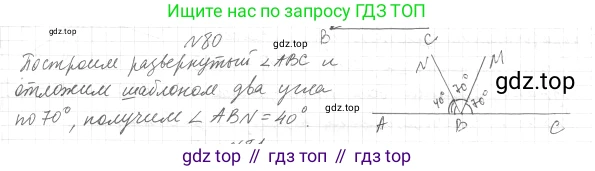 Ищите нас по запросу ГДЗ ТОП
gdz.top
N80
B C
Построим развернутый ∠ABC и
отложим шаблоном два угла
по 70°, получим ∠ABN = 40°.
gdz.top
N M
gdz.top
40° 70° 70°
A B C
gdz.top // гдз.top // gdz.top